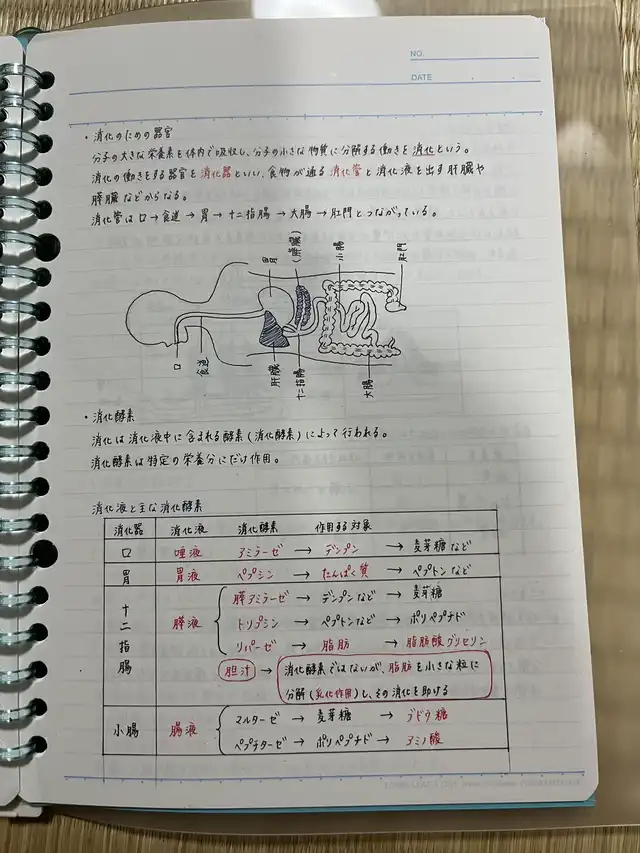 NO.
DATE
・消化のための器官
分子の大きな栄養素を体内で吸収し、分子の小さな物質に分解する働きを消化という。
消化の働きをする器官を消化器といい、食物が通る消化管と消化液を出す肝臓や
膵臓などからなる。
消化管は口→食道→胃→十二指腸→大腸→肛門とつながっている。
胃
(膵臓)
小腸
肛門
口
食道
肝臓
十二指腸
大腸
・消化酵素
消化は消化液中に含まれる酵素(消化酵素)によって行われる。
消化酵素は特定の栄養分にだけ作用。
消化液と主な消化酵素
消化器 消化液 消化酵素 作用する対象
口 唾液 アミラーゼ → デンプン → 麦芽糖など
胃 胃液 ペプシン → たんぱく質 → ペプトンなど
十二指腸 膵液 膵アミラーゼ → デンプンなど → 麦芽糖
トリプミン → ペプトンなど → ポリペプチド
リパーゼ → 脂肪 → 脂肪酸グリセリン
胆汁 → 消化酵素ではないが、脂肪を小さな粒に
分解(乳化作用)し、その消化を助ける
小腸 腸液 マルターゼ → 麦芽糖 → ブドウ糖
ペプチターゼ → ポリペプチド → アミノ酸